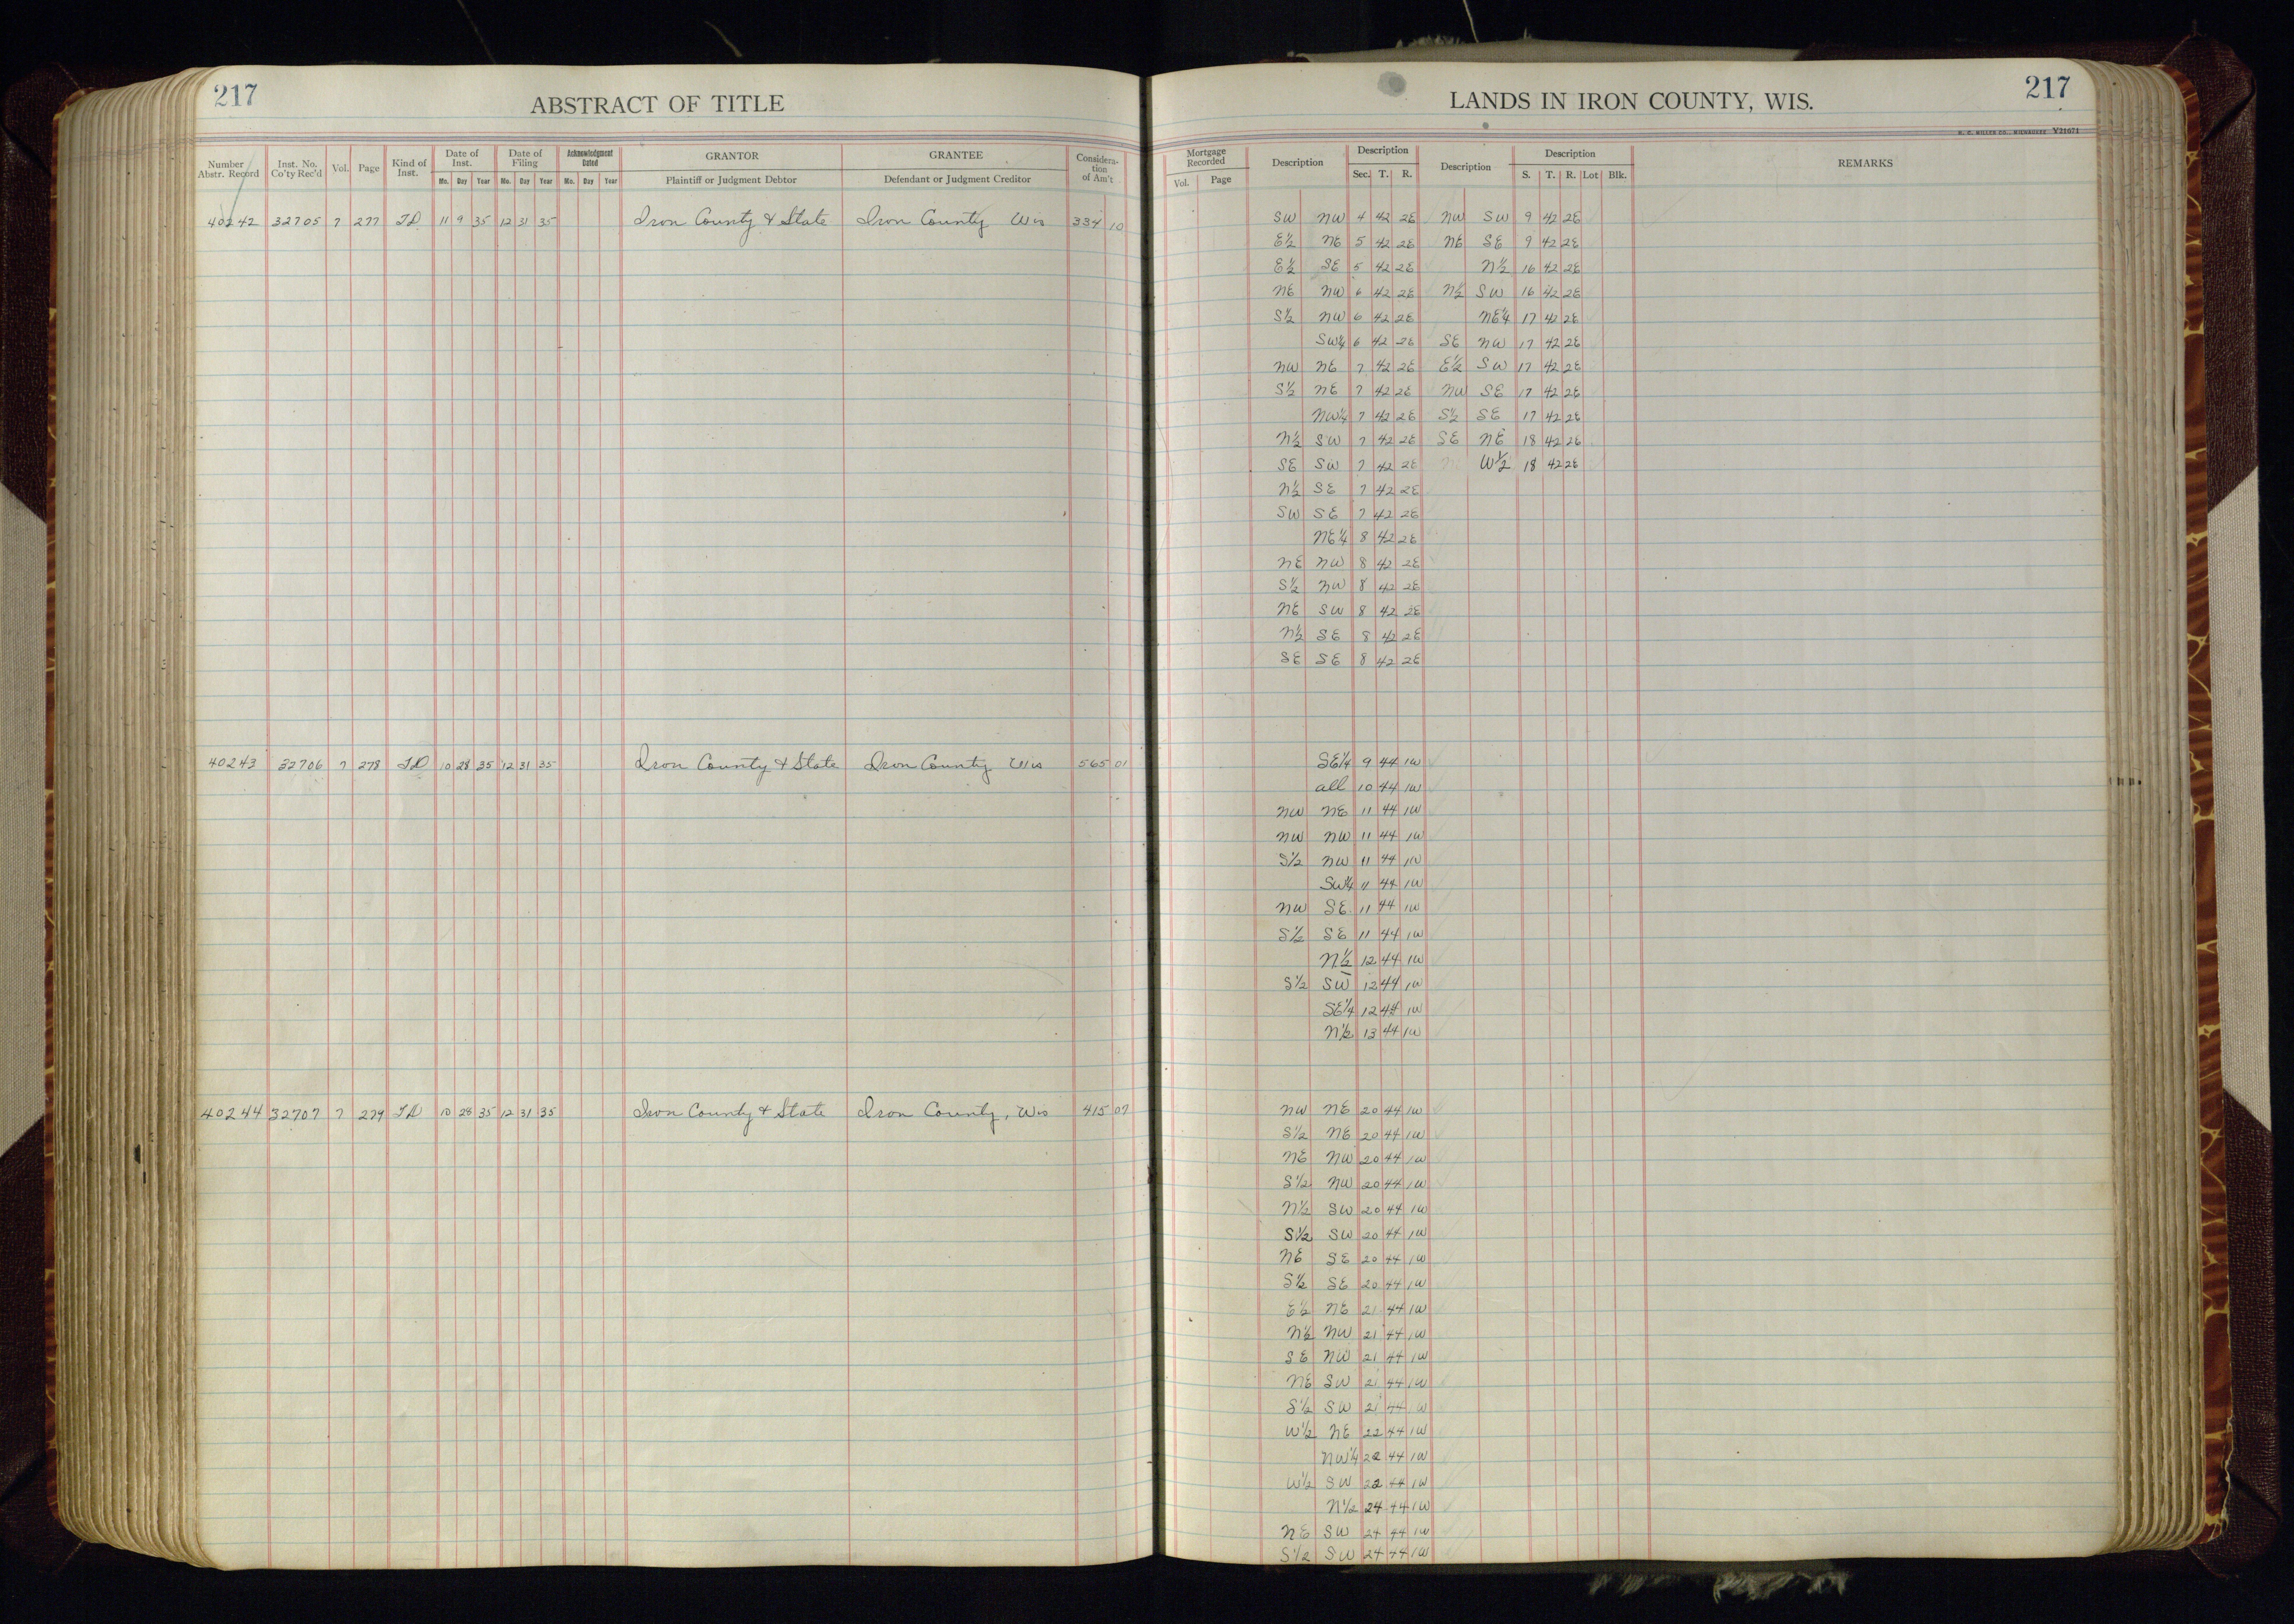 217
ABSTRACT OF TITLE
LANDS IN IRON COUNTY, WIS.
217
H. C. MILLER CO., MILWAUKEE V21071
Number Abstr. Record | Inst. No. Co'ty Rec'd | Vol. | Page | Kind of Inst. | Date of Inst. | Date of Filing | Acknowledgment Dated | GRANTOR | GRANTEE | Considera-tion of Am't
Mo. Day Year | Mo. Day Year | Mo. Day Year | Plaintiff or Judgment Debtor | Defendant or Judgment Creditor
Mortgage Recorded | Description | Description | Description | Description | REMARKS
Vol. Page | Sec. T. R. | S. T. R. Lot Blk.
40242 32705 7 277 TD 11 9 35 12 31 35 Iron County & State Iron County Wis 334 10 SW NW 4 42 2E NW SW 9 42 2E
E½ NE 5 42 2E NE SE 9 42 2E
E½ SE 5 42 2E N½ 16 42 2E
NE NW 6 42 2E N½ SW 16 42 2E
S½ NW 6 42 2E NE¼ 17 42 2E
SW¼ 6 42 2E SE NW 17 42 2E
NW NE 7 42 2E E½ SW 17 42 2E
S½ NE 7 42 2E NW SE 17 42 2E
NW¼ 7 42 2E S½ SE 17 42 2E
N½ SW 7 42 2E SE NE 18 42 2E
SE SW 7 42 2E W½ 18 42 2E
N½ SE 7 42 2E
SW SE 7 42 2E
NE¼ 8 42 2E
NE NW 8 42 2E
S½ NW 8 42 2E
NE SW 8 42 2E
N½ SE 8 42 2E
SE SE 8 42 2E
40243 32706 7 278 TD 10 28 35 12 31 35 Iron County & State Iron County Wis 565 01 SE¼ 9 44 1W
all 10 44 1W
NW NE 11 44 1W
NW NW 11 44 1W
S½ NW 11 44 1W
SW¼ 11 44 1W
NW SE 11 44 1W
S½ SE 11 44 1W
N½ 12 44 1W
S½ SW 12 44 1W
SE¼ 12 44 1W
N½ 13 44 1W
40244 32707 7 279 TD 10 28 35 12 31 35 Iron County & State Iron County, Wis 415 07 NW NE 20 44 1W
S½ NE 20 44 1W
NE NW 20 44 1W
S½ NW 20 44 1W
N½ SW 20 44 1W
S½ SW 20 44 1W
NE SE 20 44 1W
S½ SE 20 44 1W
E½ NE 21 44 1W
N½ NW 21 44 1W
SE NW 21 44 1W
NE SW 21 44 1W
S½ SW 21 44 1W
W½ NE 22 44 1W
NW¼ 22 44 1W
W½ SW 22 44 1W
N½ 24 44 1W
NE SW 24 44 1W
S½ SW 24 44 1W